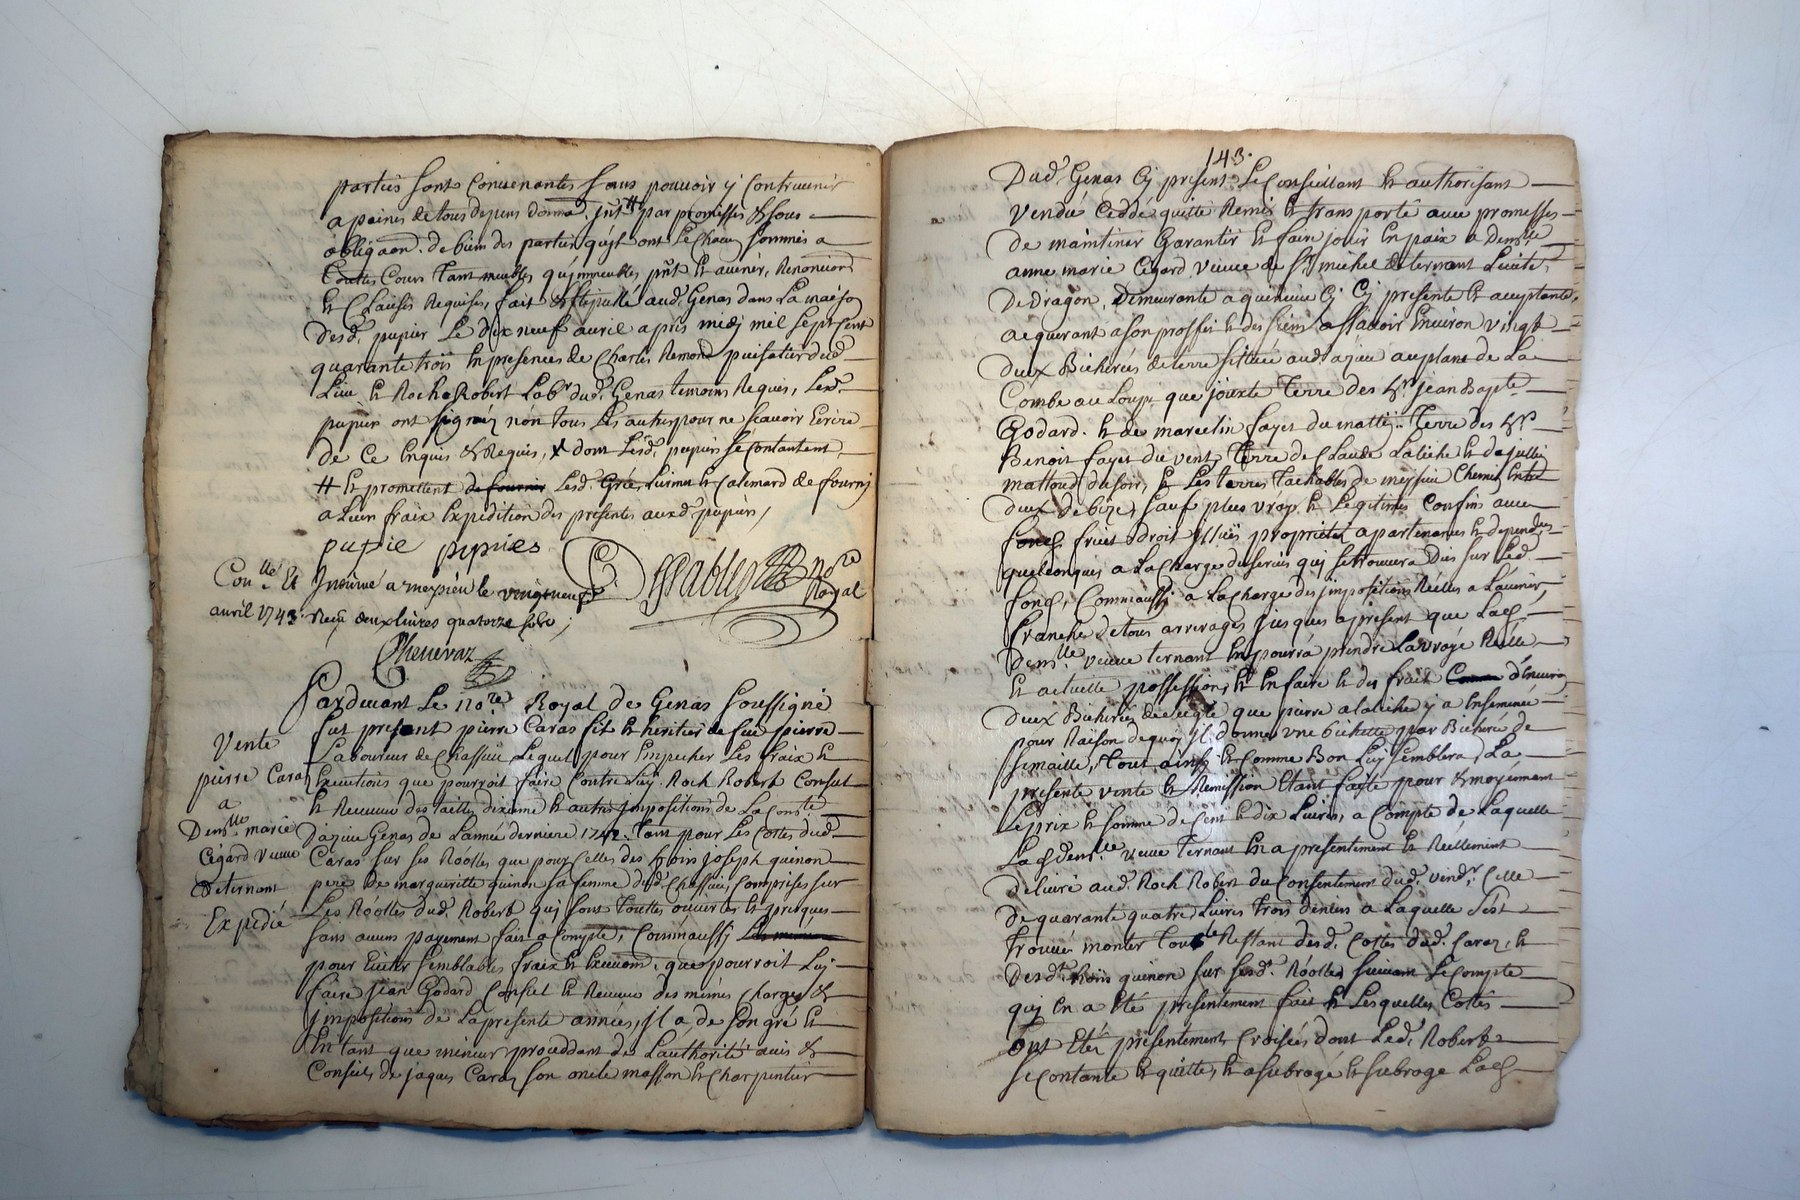 parties sont Conuenantes sans pouuoir y Contreuenir
a peines de tous depens domma. jnts # par promesses & sous
obligaon. de biens des parties quils ont
touttes Cours tant meubles qu'jmmeubles pnts & auenir, Renonciaons
& Clauses Requises, fait & stipullé aud. Genas dans La maison
desd. pupier Le dix neuf auril apres midj mil sept cent
quarante trois En presences de Charles Remond puisatier dud.
Lieu & Roch Robert Labr. dud. Genas temoins Requis, Lesd.
pupier ont signéz non tous Les autres pour ne scauoir Ecrire
de Ce Enquis & Requis, & dont Lesd. pupier se Contantent
# & promettent de fournir Lesd. & Calemard de fournir
a Leurs fraix Expedition des presentes auxd. pupiers,
pupie pupies
Desablesd nore Royal
Conllé & Jnsinué a meyzieu le vingt neuf
auril 1743. Reçu deux liures quatorze sols;
Cheneuaz
Pardeuant Le nore. Royal de Genas Soussigné
fut présant pierre Caras fils & heritier de feu pierre
Vente
Laboureur de Chassieu Lequel pour Empecher Les fraix &
pierre Caraz
Executions que pourroit faire Contre Luy Roch Robert Consul
a
& Receueur des tailles dixieme & autres Jmpositions de La Conté.
Demlle. marie
Dazieu Genas de L'année derniere 1742. tant pour Les Cottes dud.
Cégard Veuue
Caras sur ses Róolles que pour Celles des hoirs joseph quinon
de ternant
pere de margueritte quinon sa femme dud. Chassieu, Comprises sur
Expedié
Les Róolles dud. Robert quj sont touttes ouuertes & presques
sans aucun payement fait a Compte, Commaussj
pour Euiter semblables fraix & Execuons. que pourroit Luj
faire Jean Godard Consul & Receueur des mêmes Charges &
jmpositions de La presente années, jl a de son gré &
En tant que mineur procedant de L'authorité auis &
Conseils de jaques Caraz son oncle masson & Charpentier
143.
Dud. Genas Cj present Le Conseillant & authorisant
Vendu Cedde quitté Remis & transporté auec promesses
de maintenir Garantir & faire jouir En paix a Demlle
anne marie Cégard Veuue de Sr. michel de ternant Lieutt.
De dragon, Demeurante a Cj Cj presente & acceptante,
acquerant a son proffit & des siens assauoir Enuiron Vingt
deux Bicherées de terre sittuée aud. azieu au plant de La
Combe au Loup que jouxte Terre des Sr. Jean Bapte.
Godard & de marcelin fayet du mattin Terre des Sr.
Benoit fayet du vent, Terre de Claude Laliche & de jullien
mattoud du soir, & Les terres Tachables de meyzieu Chemin Entre
deux de bize, sauf plus vrays & Legitimes Confins auec
fonds fruits droit jssuës proprietés apartenances & dependces.
quelconques a La Charge du seruis quj se trouuera Deu sur Led.
fond, Commaussj a La Charge des jmpositions Réelles a L'auenir,
franche de tous arrerages jusques a present que Lad.
Demlle. veuue ternant En pourra prendre La vraye Réelle
& actuelle possession, & En faire & des fruit d'Enuiron
deux Bicherées de seigle que pierre alaliche y a Ensemencé
pour Raison dequoy jl donne vne bichette par Bicherée de
semaille, tout ainsj & Comme Bon Luy semblera, La
presente vente & Remission Etant faite pour & moyennant
Le prix & somme de Cent & dix Liures, a Compte de Laquelle
Lad. demlle. veuue ternant En a presentement & Réellement
deliuré aud. Roch Robert du Consentement dud. vendr. Celle
de quarante quatre Liures trois deniers a Laquelle s'est
trouuée monter tout le Restant desd. Cottes dud. Caraz, &
desdt. hoirs quinon sur sesdt. Róolles suiuant Le Compte
quj En a Eté presentement fait & Lesquelles Cottes
ont Etéz presentement Croisées dont Led. Robert
se contante & quitte, & a subrogé & subroge Lad.